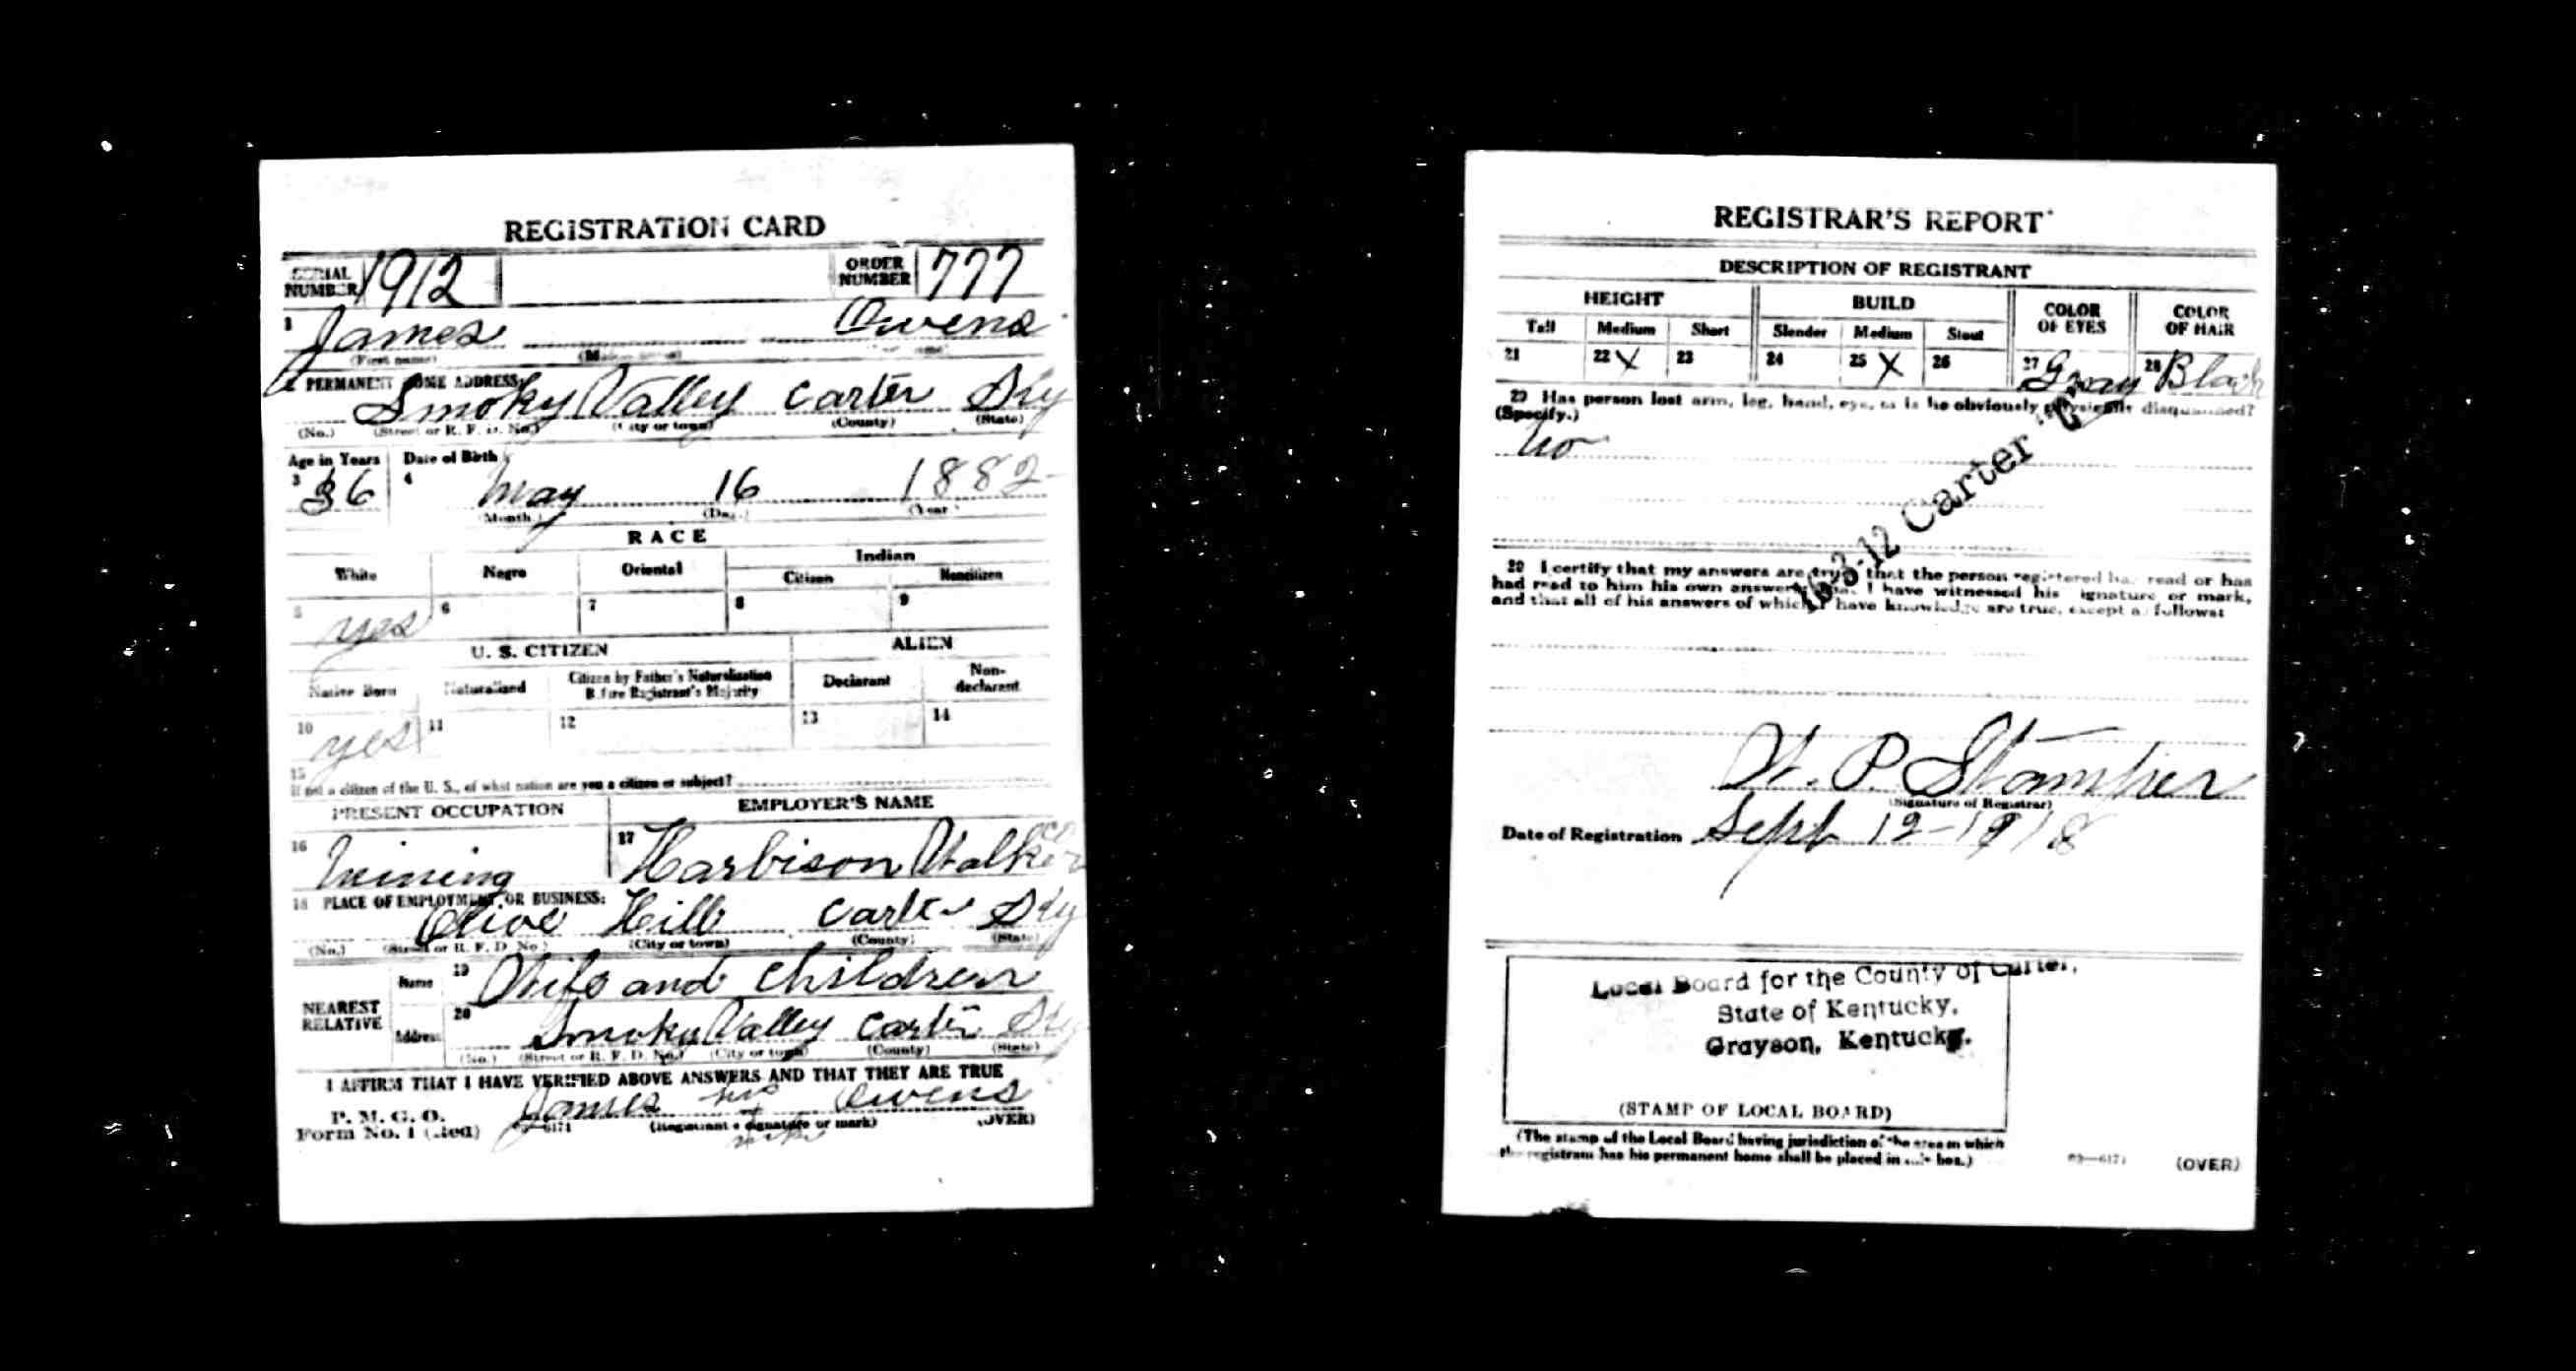 REGISTRATION CARD
SERIAL NUMBER 1912 ORDER NUMBER 777
1 James Owens
(First name)
2 PERMANENT HOME ADDRESS:
Smoky Valley Carter Ky
(No.) (Street or R. F. D. No.) (City or town) (County) (State)
Age in Years Date of Birth
3 36 4 May 16 1882
(Month.) (Day.) (Year.)
RACE
White Negro Oriental Indian
Citizen Noncitizen
5 yes 6 7 8 9
U. S. CITIZEN ALIEN
Native Born Naturalized Citizen by Father's Naturalization Before Registrant's Majority Declarant Non-declarant
10 yes 11 12 13 14
15
If not a citizen of the U. S., of what nation are you a citizen or subject?
PRESENT OCCUPATION EMPLOYER'S NAME
16 Mining 17 Harbison Walker co
18 PLACE OF EMPLOYMENT OR BUSINESS:
Olive Hill Carter Ky
(No.) (Street or R. F. D. No.) (City or town) (County) (State)
NEAREST RELATIVE Name 19 Wife and children
Address 20 Smoky Valley Carter Ky
(No.) (Street or R. F. D. No.) (City or town) (County) (State)
I AFFIRM THAT I HAVE VERIFIED ABOVE ANSWERS AND THAT THEY ARE TRUE
P. M. G. O.
Form No. 1 (Red) James his x Owens
03—6171 (Registrant's signature or mark) (OVER)
mark
REGISTRAR'S REPORT
DESCRIPTION OF REGISTRANT
HEIGHT BUILD COLOR OF EYES COLOR OF HAIR
Tall Medium Short Slender Medium Stout
21 22 X 23 24 25 X 26 27 Gray 28 Black
29 Has person lost arm, leg, hand, eye, or is he obviously physically disqualified?
(Specify.)
No
16-3-12 Carter "C"
30 I certify that my answers are true, that the person registered has read or has
had read to him his own answers, that I have witnessed his signature or mark,
and that all of his answers of which I have knowledge are true, except as follows:
W. P. Stamper
(Signature of Registrar)
Date of Registration Sept 12-1918
Local Board for the County of Carter,
State of Kentucky,
Grayson, Kentucky.
(STAMP OF LOCAL BOARD)
(The stamp of the Local Board having jurisdiction of the area in which
the registrant has his permanent home shall be placed in this box.)
03—6171 (OVER)